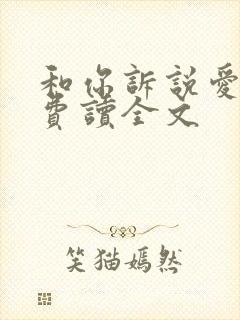 和你訴說愛
費讀全文
笑猫嫣然